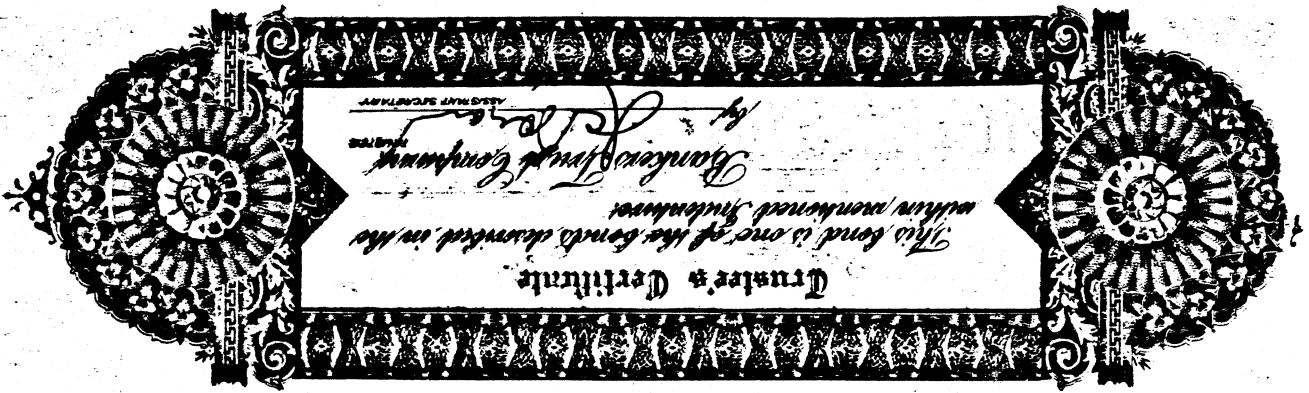 Trustee's Certificate
This bond is one of the bonds described in the
within mentioned Indenture
Bankers Trust Company
TRUSTEE
By
ASSISTANT SECRETARY